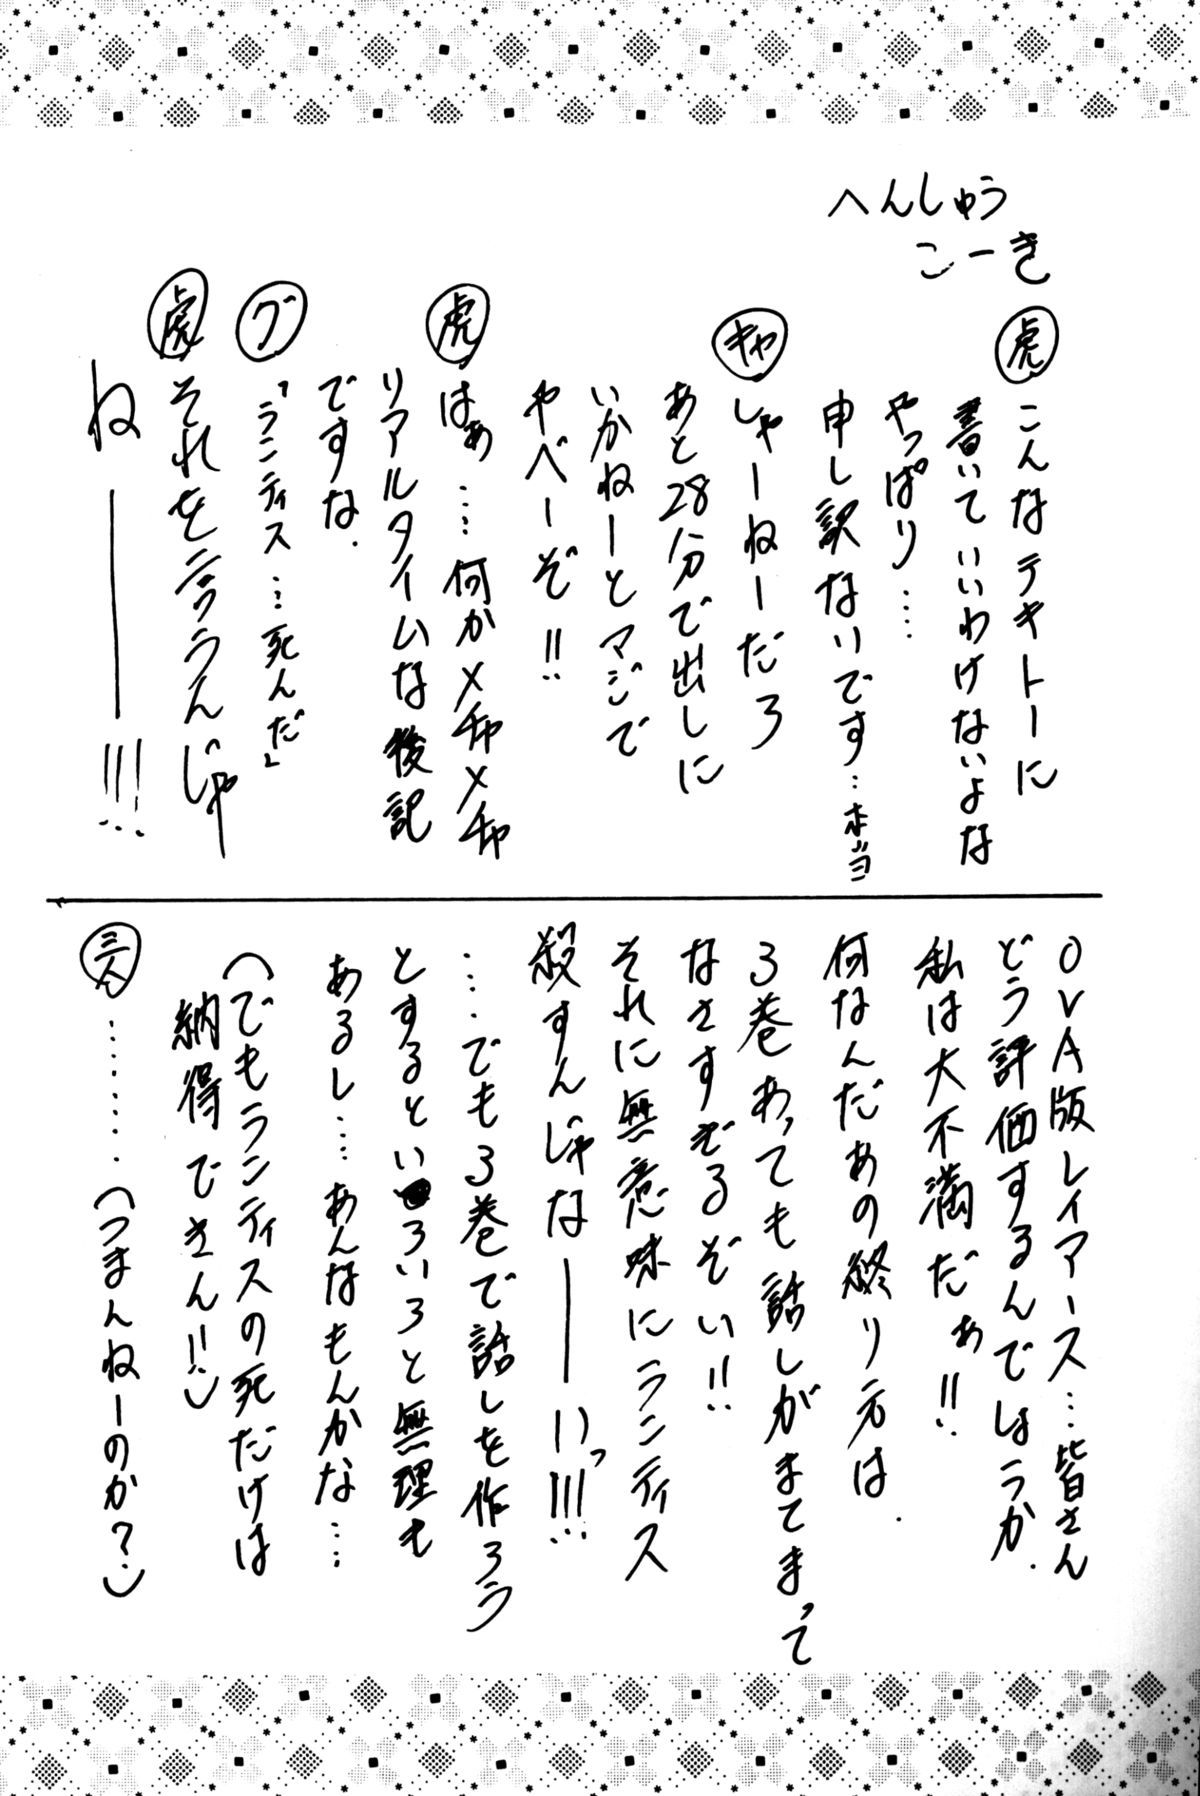 へんしゅう
こーき
虎 こんなテキトーに
書いていいわけないよな
やっぱり‥‥
申し訳ないです…本当
キャ しゃーねーだろ
あと28分で出しに
いかねーとマジで
やべーぞ!!
虎 はぁ‥‥何かメチャメチャ
リアルタイムな後記
ですな.
グ 「ランティス…死んだ」
虎 それを言うんじゃ
ねーーー!!!
OVA版レイアース…皆さん
どう評価するんでしょうか.
私は大不満だぁ!!
何なんだあの終り方は.
3巻あっても話しがまてまって
なさすぎるぞい!!
それに無意味にランティス
殺すんじゃなーーーいっ!!!
‥‥でも3巻で話しを作ろう
とするといろいろと無理も
あるし‥‥あんなもんかな‥‥
(でもランティスの死だけは
納得できん!!)
三人 ‥‥‥‥(つまんねーのか?)